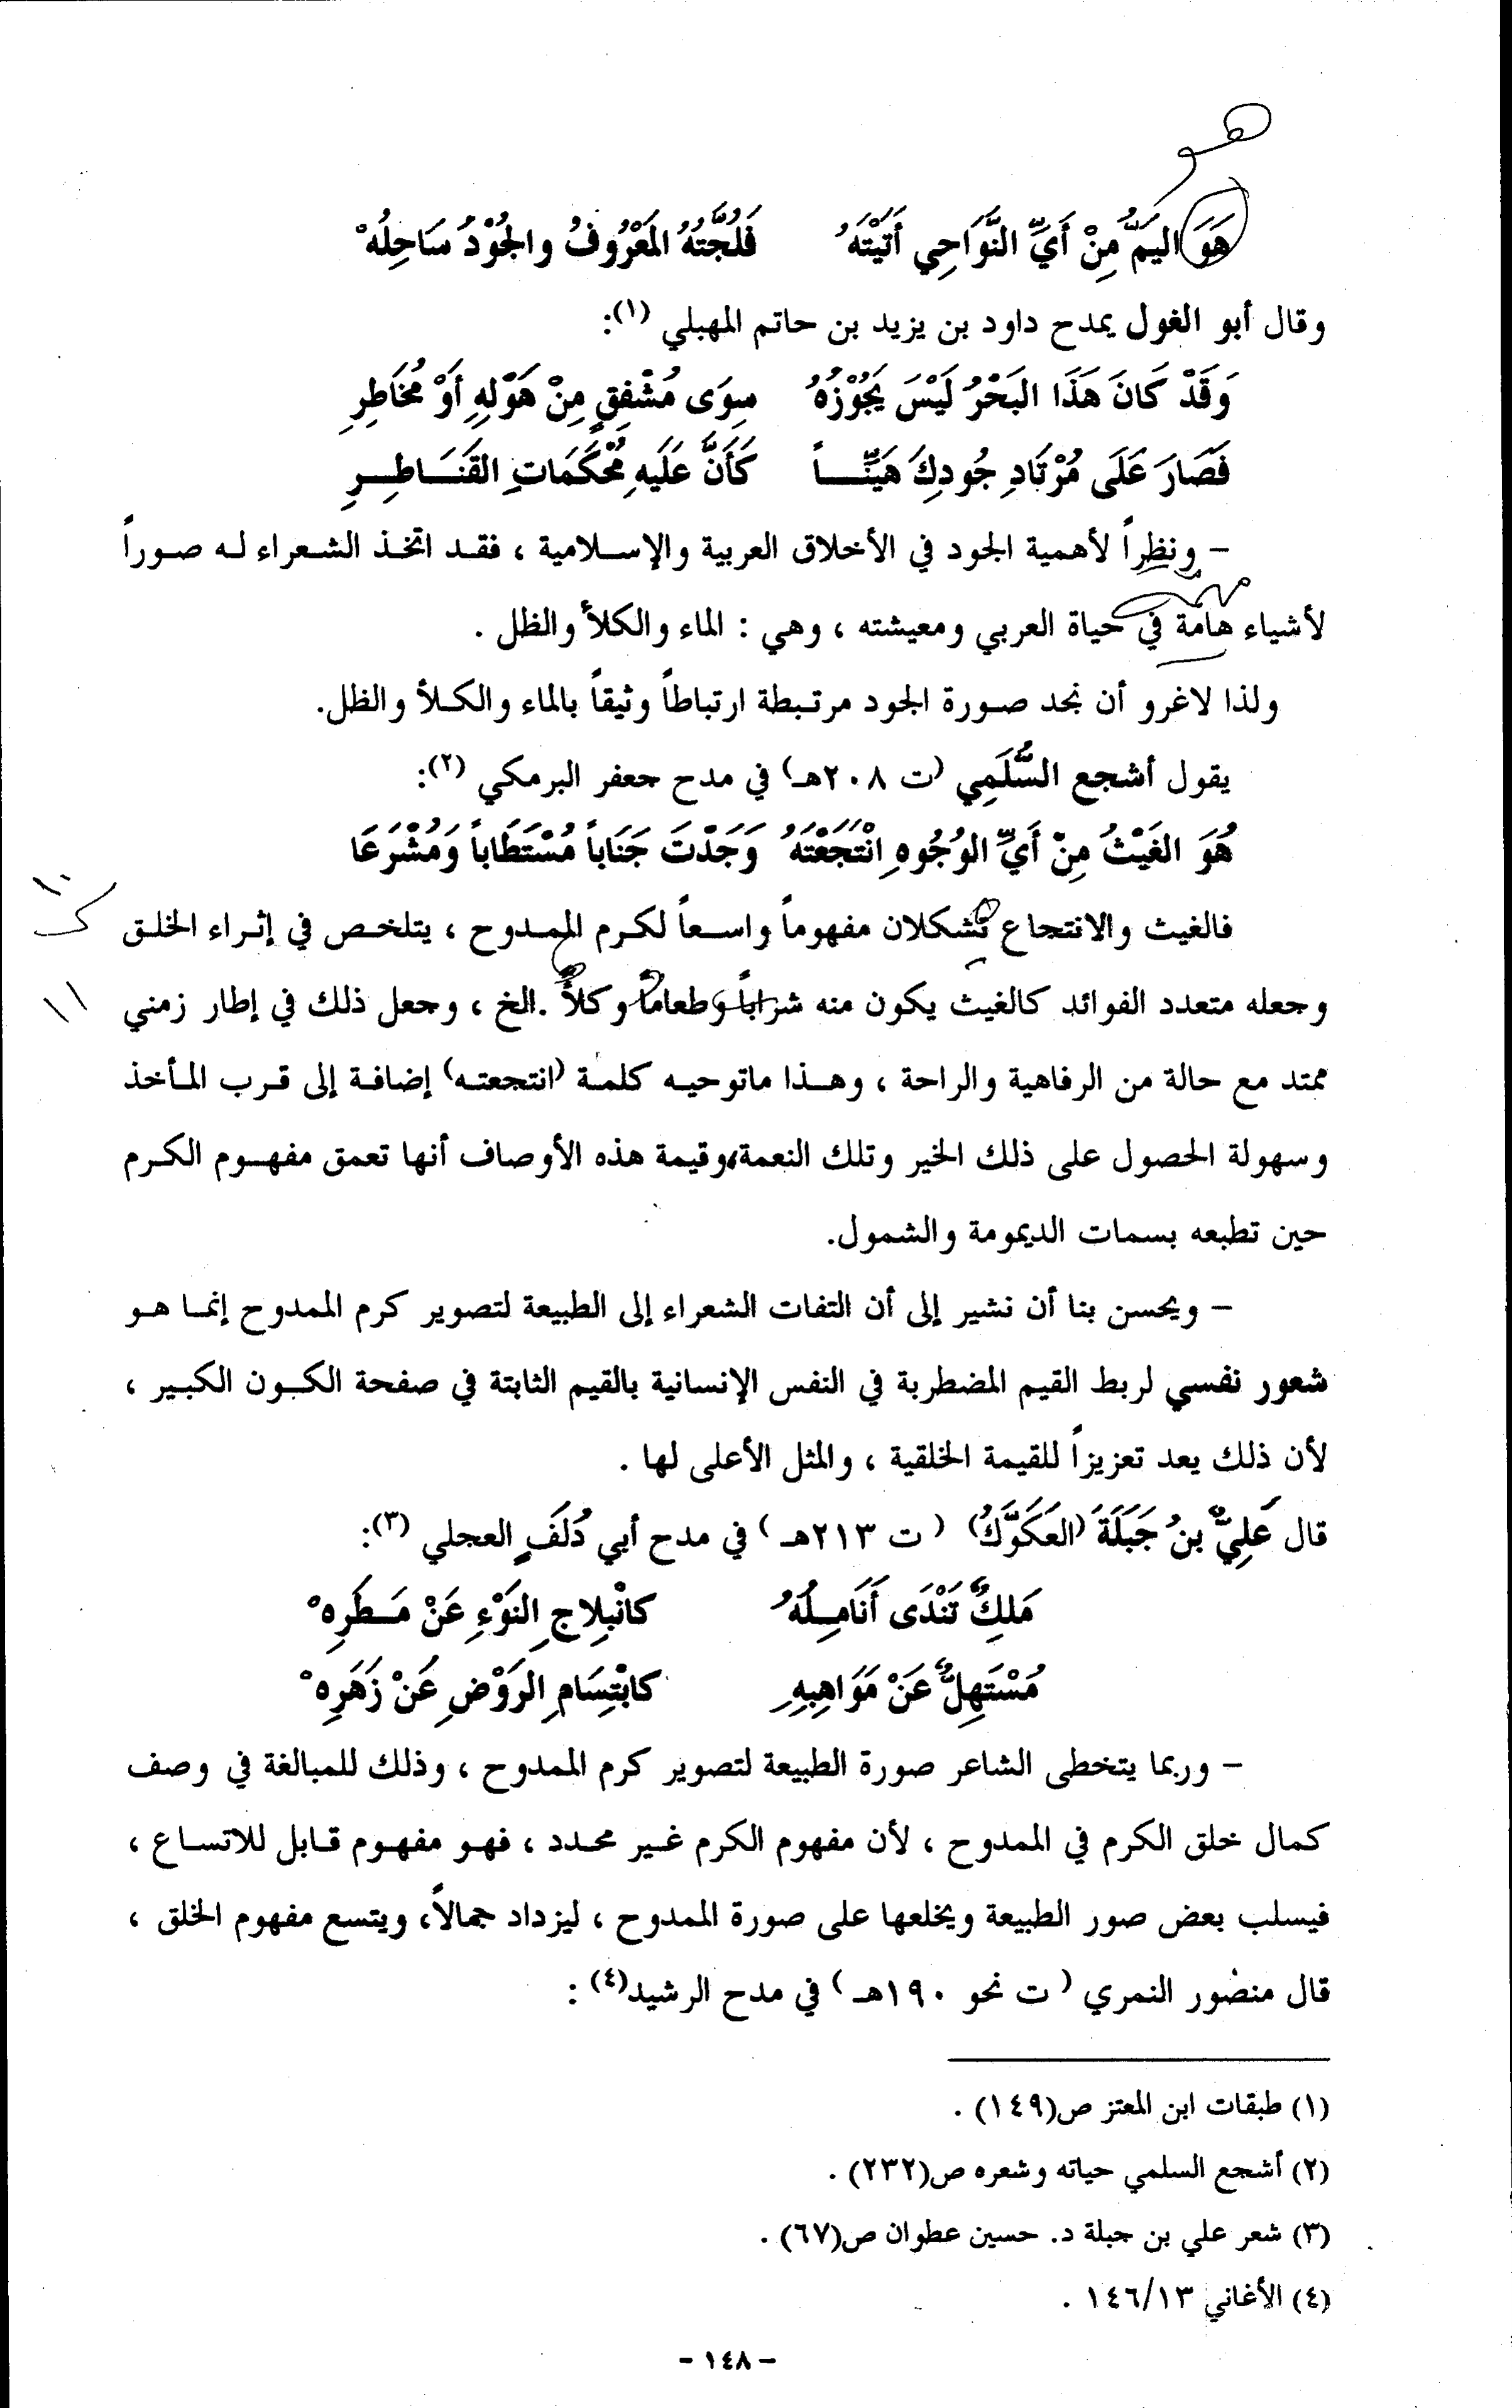 هو
هَوَ اليَمُّ مِنْ أَيِّ النَّوَاحِي أَتَيْتَهُ فَلُجَّتُهُ المَعْرُوفُ والجُوْدُ سَاحِلُهْ
وقال أبو الغول يمدح داود بن يزيد بن حاتم المهبلي (١):
وَقَدْ كَانَ هَذَا البَحْرُ لَيْسَ يَجُوْزُهُ سِوَى مُشْفِقٍ مِنْ هَوْلِهِ أَوْ مُخَاطِرِ
فَصَارَ عَلَى مُرْتَادِ جُودِكَ هَيِّنـــاً كَأَنَّ عَلَيهِ مُحْكَمَاتِ القَنَـاطِـرِ
– ونظراً لأهمية الجود في الأخلاق العربية والإسلامية ، فقد اتخذ الشعراء له صوراً
لأشياء هامة في حياة العربي ومعيشته ، وهي : الماء والكلأ والظل .
ولذا لاغرو أن نجد صورة الجود مرتبطة ارتباطاً وثيقاً بالماء والكلأ والظل.
يقول أشجع السُّلَمِي (ت ٢٠٨هـ) في مدح جعفر البرمكي (٢):
هُوَ الغَيْثُ مِنْ أَيِّ الوُجُوهِ انْتَجَعْتَهُ وَجَدْتَ جَنَاباً مُسْتَطَاباً وَمُشْرَعَا
فالغيث والانتجاع تشكلان مفهوماً واسعاً لكرم الممدوح ، يتلخص في إثراء الخلق
وجعله متعدد الفوائد كالغيث يكون منه شراباً وطعاماً وكلأً .الخ ، وجعل ذلك في إطار زمني
١١
ممتد مع حالة من الرفاهية والراحة ، وهذا ماتوحيه كلمة (انتجعته) إضافة إلى قرب المأخذ
وسهولة الحصول على ذلك الخير وتلك النعمة،وقيمة هذه الأوصاف أنها تعمق مفهوم الكرم
حين تطبعه بسمات الديمومة والشمول.
– ويحسن بنا أن نشير إلى أن التفات الشعراء إلى الطبيعة لتصوير كرم الممدوح إنما هو
شعور نفسي لربط القيم المضطربة في النفس الإنسانية بالقيم الثابتة في صفحة الكون الكبير ،
لأن ذلك يعد تعزيزاً للقيمة الخلقية ، والمثل الأعلى لها .
قال عَلِيُّ بنُ جَبَلَةَ (العَكَوَّكُ) ( ت ٢١٣هـ ) في مدح أبي دُلَفٍ العجلي (٣):
مَلِكٌ تَنْدَى أَنَامِـلُهُ كانْبِلاجِ النَوْءِ عَنْ مَـطَرِهْ
مُسْتَهِلٌّ عَنْ مَوَاهِبِهِ كابْتِسَامِ الرَوْضِ عَنْ زَهَرِهْ
– وربما يتخطى الشاعر صورة الطبيعة لتصوير كرم الممدوح ، وذلك للمبالغة في وصف
كمال خلق الكرم في الممدوح ، لأن مفهوم الكرم غير محدد ، فهو مفهوم قابل للاتساع ،
فيسلب بعض صور الطبيعة ويخلعها على صورة الممدوح ، ليزداد جمالاً، ويتسع مفهوم الخلق ،
قال منصور النمري ( ت نحو ١٩٠هـ ) في مدح الرشيد(٤) :
(١) طبقات ابن المعتز ص(١٤٩) .
(٢) أشجع السلمي حياته وشعره ص(٢٣٢) .
(٣) شعر علي بن جبلة د. حسين عطوان ص(٦٧) .
(٤) الأغاني ١٤٦/١٣ .
- ١٤٨ -